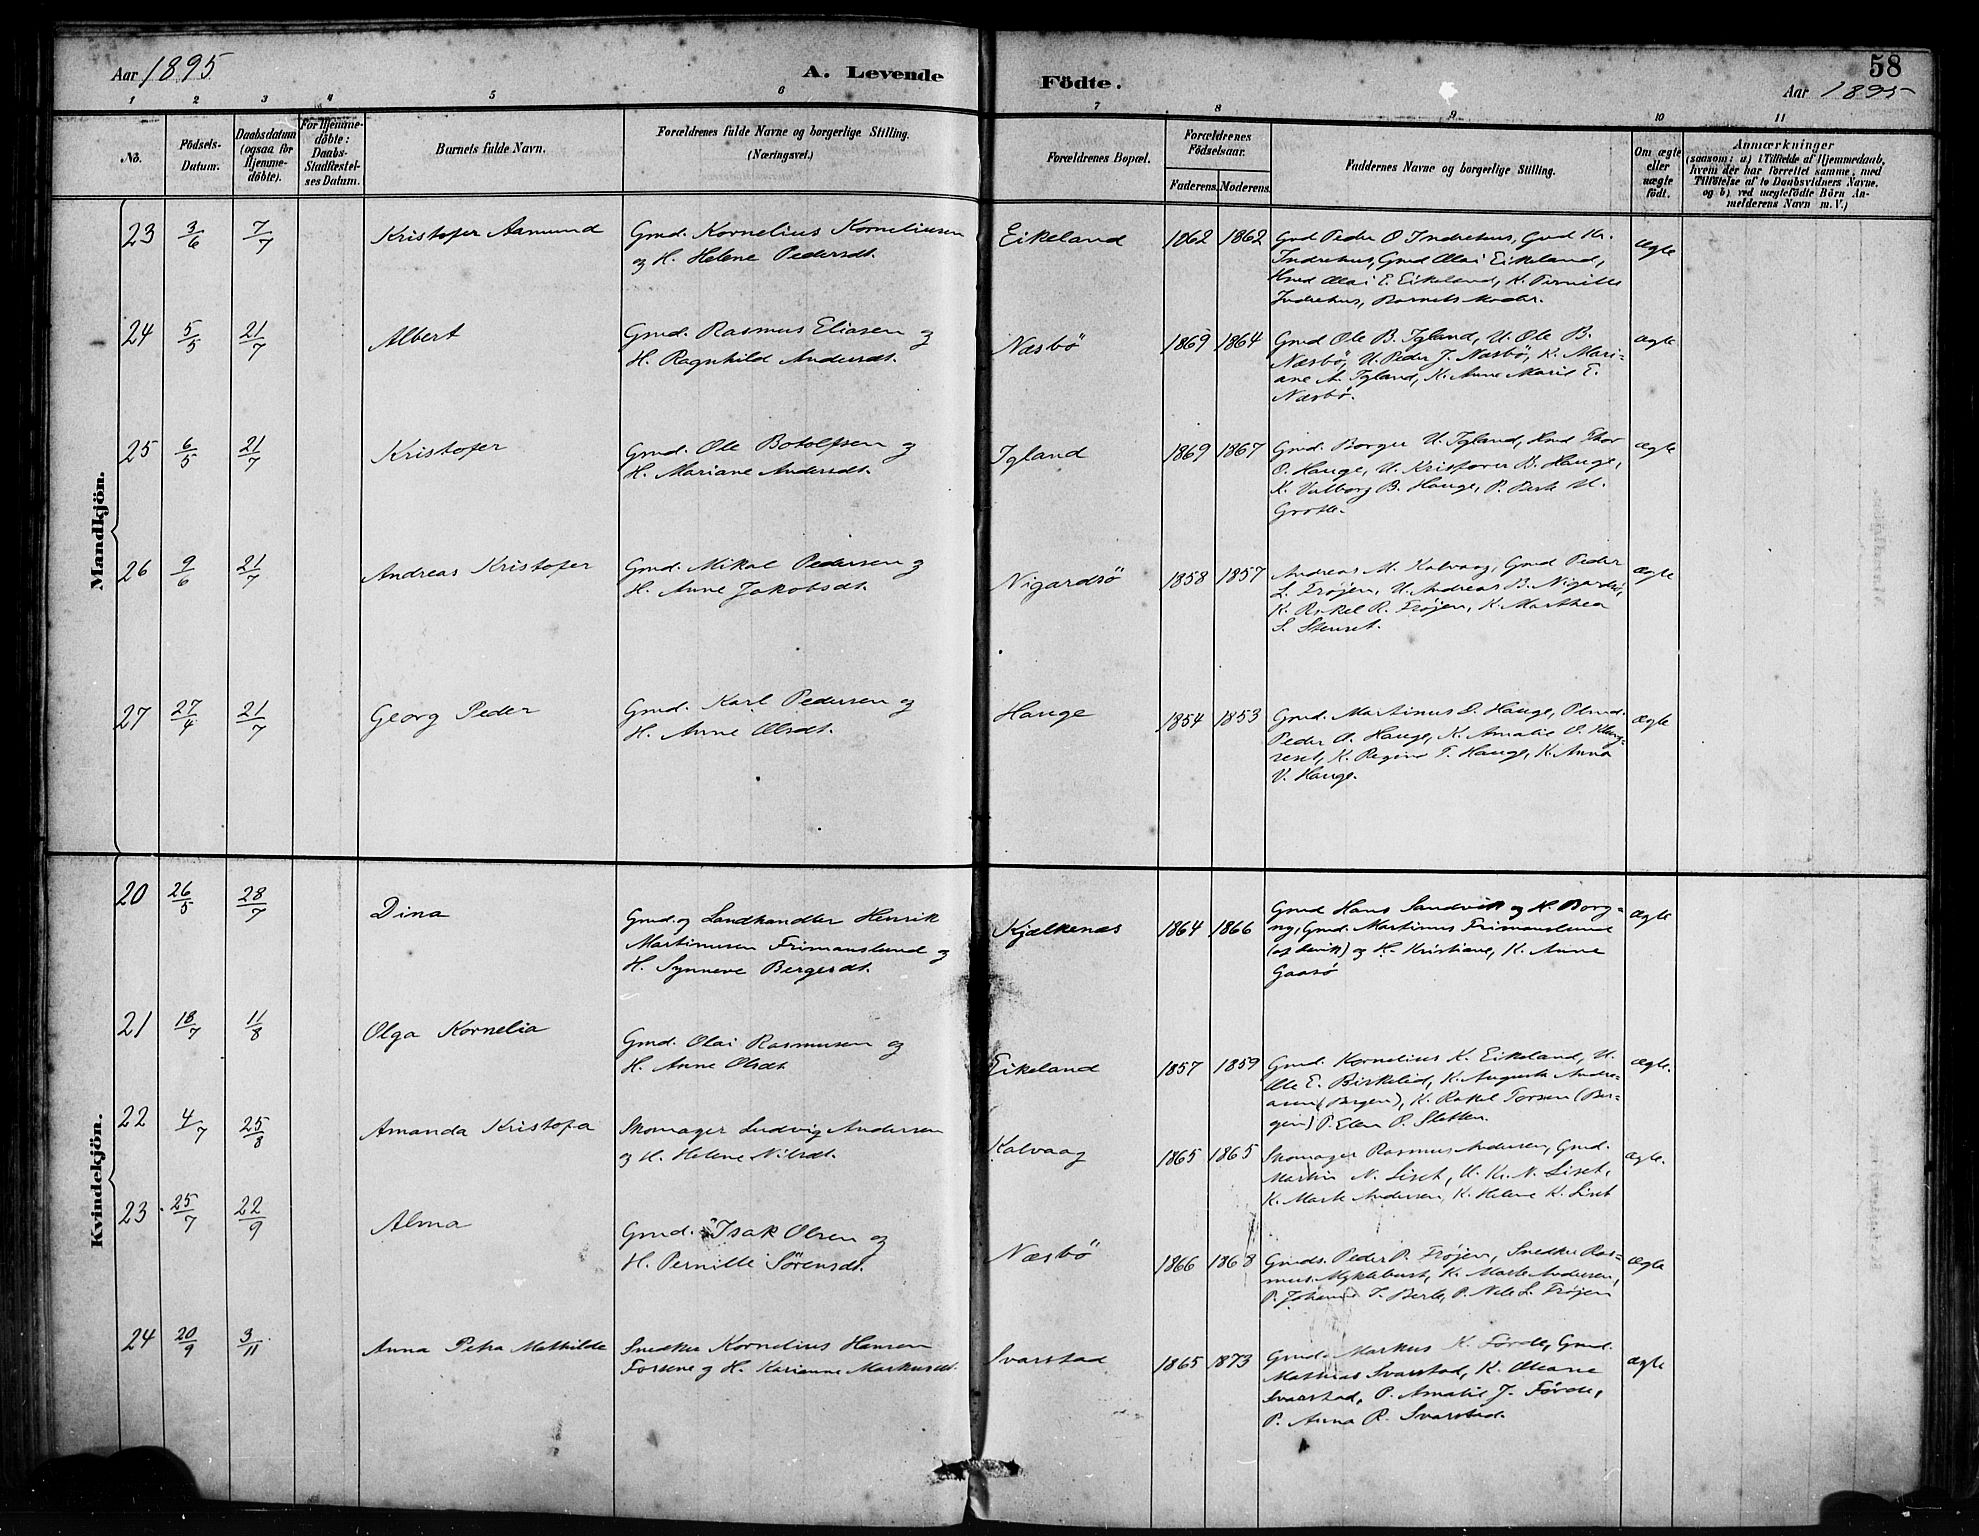 58
Aar 1895
A. Levende
Födte.
Aar 1895
1 2 3 4 5 6 7 8 9 10 11
No.
Födsels-
Datum.
Daabsdatum
(ogsaa for
Hjemme-
döbte).
For Hjemme-
döbte:
Daabs-
Stadfæstel-
ses Datum.
Barnets fulde Navn.
Forældrenes fulde Navne og borgerlige Stilling.
(Næringsvei.)
Forældrenes Bopæl.
Forældrenes
Födselsaar.
Faderens. Moderens.
Faddernes Navne og borgerlige Stilling.
Om ægte
eller
uægte
født.
Anmærkninger
(saasom: a) i Tilfælde af Hjemmedaab,
hvem der har forrettet samme, med
Tilföielse af to Daabsvidners Navne,
og b) ved uægtefödte Börn An-
melderens Navn m. V.)
Mandkjön.
23 3/6 7/7 Kristofer Aamund
Gmd. Kornelius Korneliusen
og H. Helene Pedersdt.
Eikeland 1862 1862
Gmd Peder O Indrehus, Gmd Kr.
Indrehus, Gmd Olai Eikeland,
Olai E. Eikeland, K. Pernille
Indrehus, Barnets Moder.
ægte
24 5/5 21/7 Albert
Gmd. Rasmus Eliasen og
H. Ragnhild Andersdt.
Næsbö 1869 1864
Gmd Ole B. Igland, U. Ole B.
Næsbö, U. Peder J. Næsbö, K. Mari-
ane A. Igland, K. Anne Marie E.
Næsbö.
ægte
25 6/5 21/7 Kristofer
Gmd. Ole Botolfsen og
H. Mariane Andersdt.
Igland 1869 1867
Gmd. Borger U. Igland, Hmd Thor
O. Hauge, U. Kristofer B. Hauge,
K. Valborg B. Hauge, P. U.
ægte
26 9/6 21/7 Andreas Kristofer
Gmd. Mikal Pedersen og
H. Anne Jakobsdt.
Nigardsö 1858 1857
Andreas M. Kalvaag, Gmd Peder
L. Frøjen, U. Andreas B. Nigardsö,
K. Rakel R. Frøjen, K. Marthea
S. Stenset.
ægte
27 27/4 21/7 Georg Peder
Gmd. Karl Pedersen og
H. Anne Olsdt.
Hauge 1854 1853
Gmd. Martinus D. Hauge,
Peder A. Hauge, K. Amalie O.
K. Regine T. Hauge, K. Anna
V. Hauge.
ægte
Kvindekjön.
20 26/5 28/7 Dina
Gmd. og Landhandler Henrik
Martinusen Frimanslund og
H. Synneve Bergersdt.
Kjælkenæs 1864 1866
Gmd Hans Sandvik og H. Borg-
ny, Gmd. Martinus Frimanslund
og H. Kristiane, K. Anne
Gaasö
ægte
21 18/7 11/8 Olga Kornelia
Gmd. Olai Rasmusen og
H. Anne Olsdt.
Eikeland 1857 1859
Gmd. Kornelius K. Eikeland, U.
Ole E. Birkelid, K. Augusta Andre-
asen (Bergen), K. Rakel Torsen (Ber-
gen) P. Elen P. Sletten.
ægte.
22 4/7 25/8 Amanda Kristofa
Skomager Ludvig Andersen
og H. Helene Nilsdt.
Kalvaag 1865 1865
Skomager Rasmus Andersen, Gmd.
Martin N. Liset, U. Kr. N. Liset,
K. Marte Andersen, K. Helene K. Liset
ægte.
23 25/7 22/9 Alma
Gmd. Isak Olsen og
H. Pernille Sörensdt.
Næsbö 1866 1868
Gmds. Peder P. Frøjen, Snedker Ras-
mus Myklebust, K. Marte Andersen,
P. Johanne T. Berle, P. Nele L. Frøjen
ægte
24 20/9 3/11 Anna Petra Mathilde
Snedker Kornelius Hansen
Forsene og H. Karianne Markusdt.
Svarstad 1865 1873
Gmd. Markus K. Förde, Gmd.
Mathias Svarstad, K. Oleane
Svarstad, P. Amalie J. Förde,
P. Anna R. Svarstad.
ægte